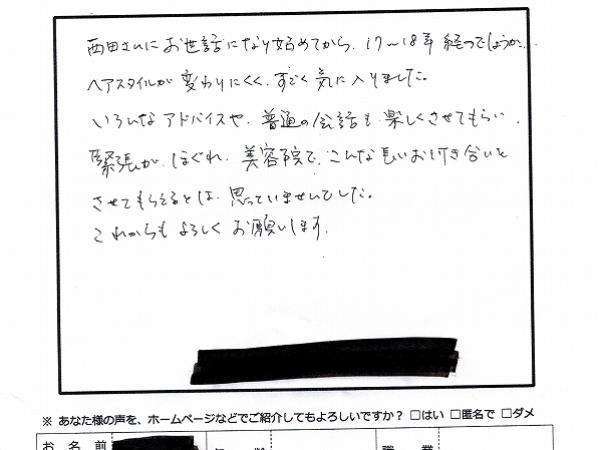 西田さんにお世話になり始めてから、17〜18年経つでしょうか…
ヘアスタイルが変わりにくく、すごく気に入りました。
いろんなアドバイスや、普通の会話も楽しくさせてもらい、
緊張が、ほぐれ、美容院で、こんな長いお付き合いと
させてもらえるとは、思っていませんでした。
これからもよろしくお願いします。
※ あなた様の声を、ホームページなどでご紹介してもよろしいですか？ □はい □匿名で □ダメ
お名前